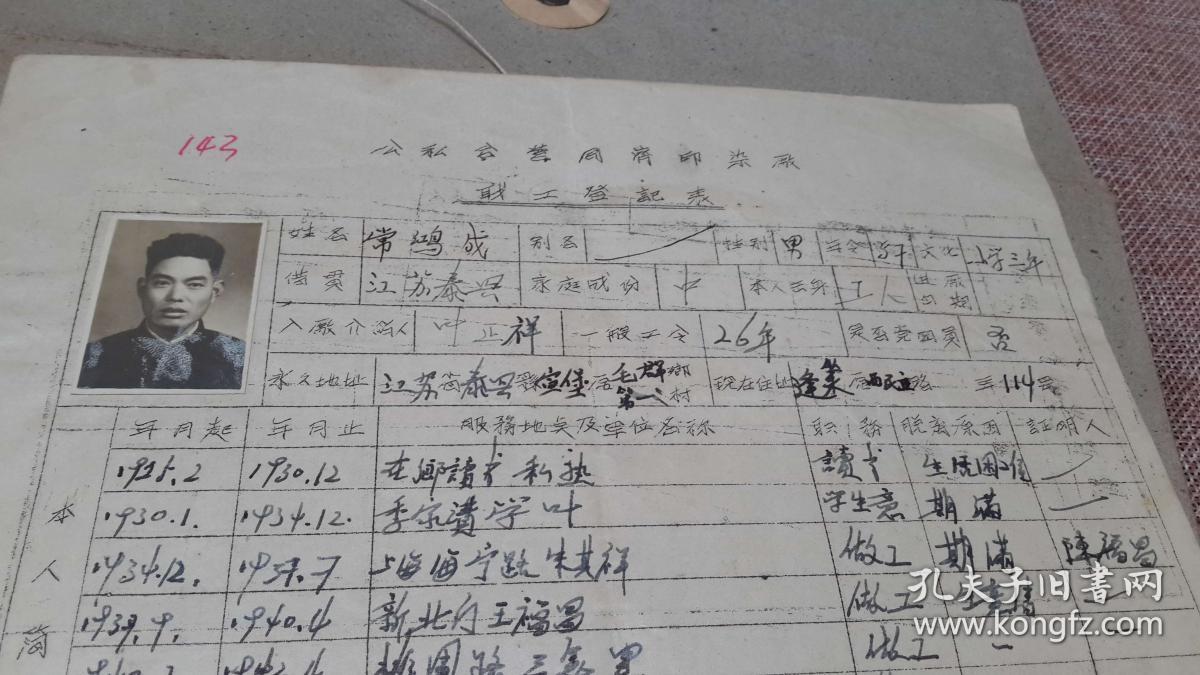 143
公私合营同济印染厂
职工登记表
姓名 常鸿成 别名 性别 男 年令 文化 小学三年
借贯 江苏泰兴 家庭成份 中 本人出身 工人 进厂日期
入厰介绍人 叶正祥 一般工令 26年 是否党团员 否
永久地址 江苏省泰兴县宣堡区毛群乡第八村 现在住址 蓬莱区 路 114号
年月起 年月止 服務地点及单位名称 职務 脱离原因 証明人
1925.2 1930.12 在鄉讀书私塾 讀书 生活困难
1930.1. 1934.12. 学叶 学生意 期滿
1934.12. 上海海宁路朱其祥 做工 期滿 陳福昌
1939.9. 1940.4 新北门王福昌 做工
做工
本人简
孔夫子旧书网
www.kongfz.com